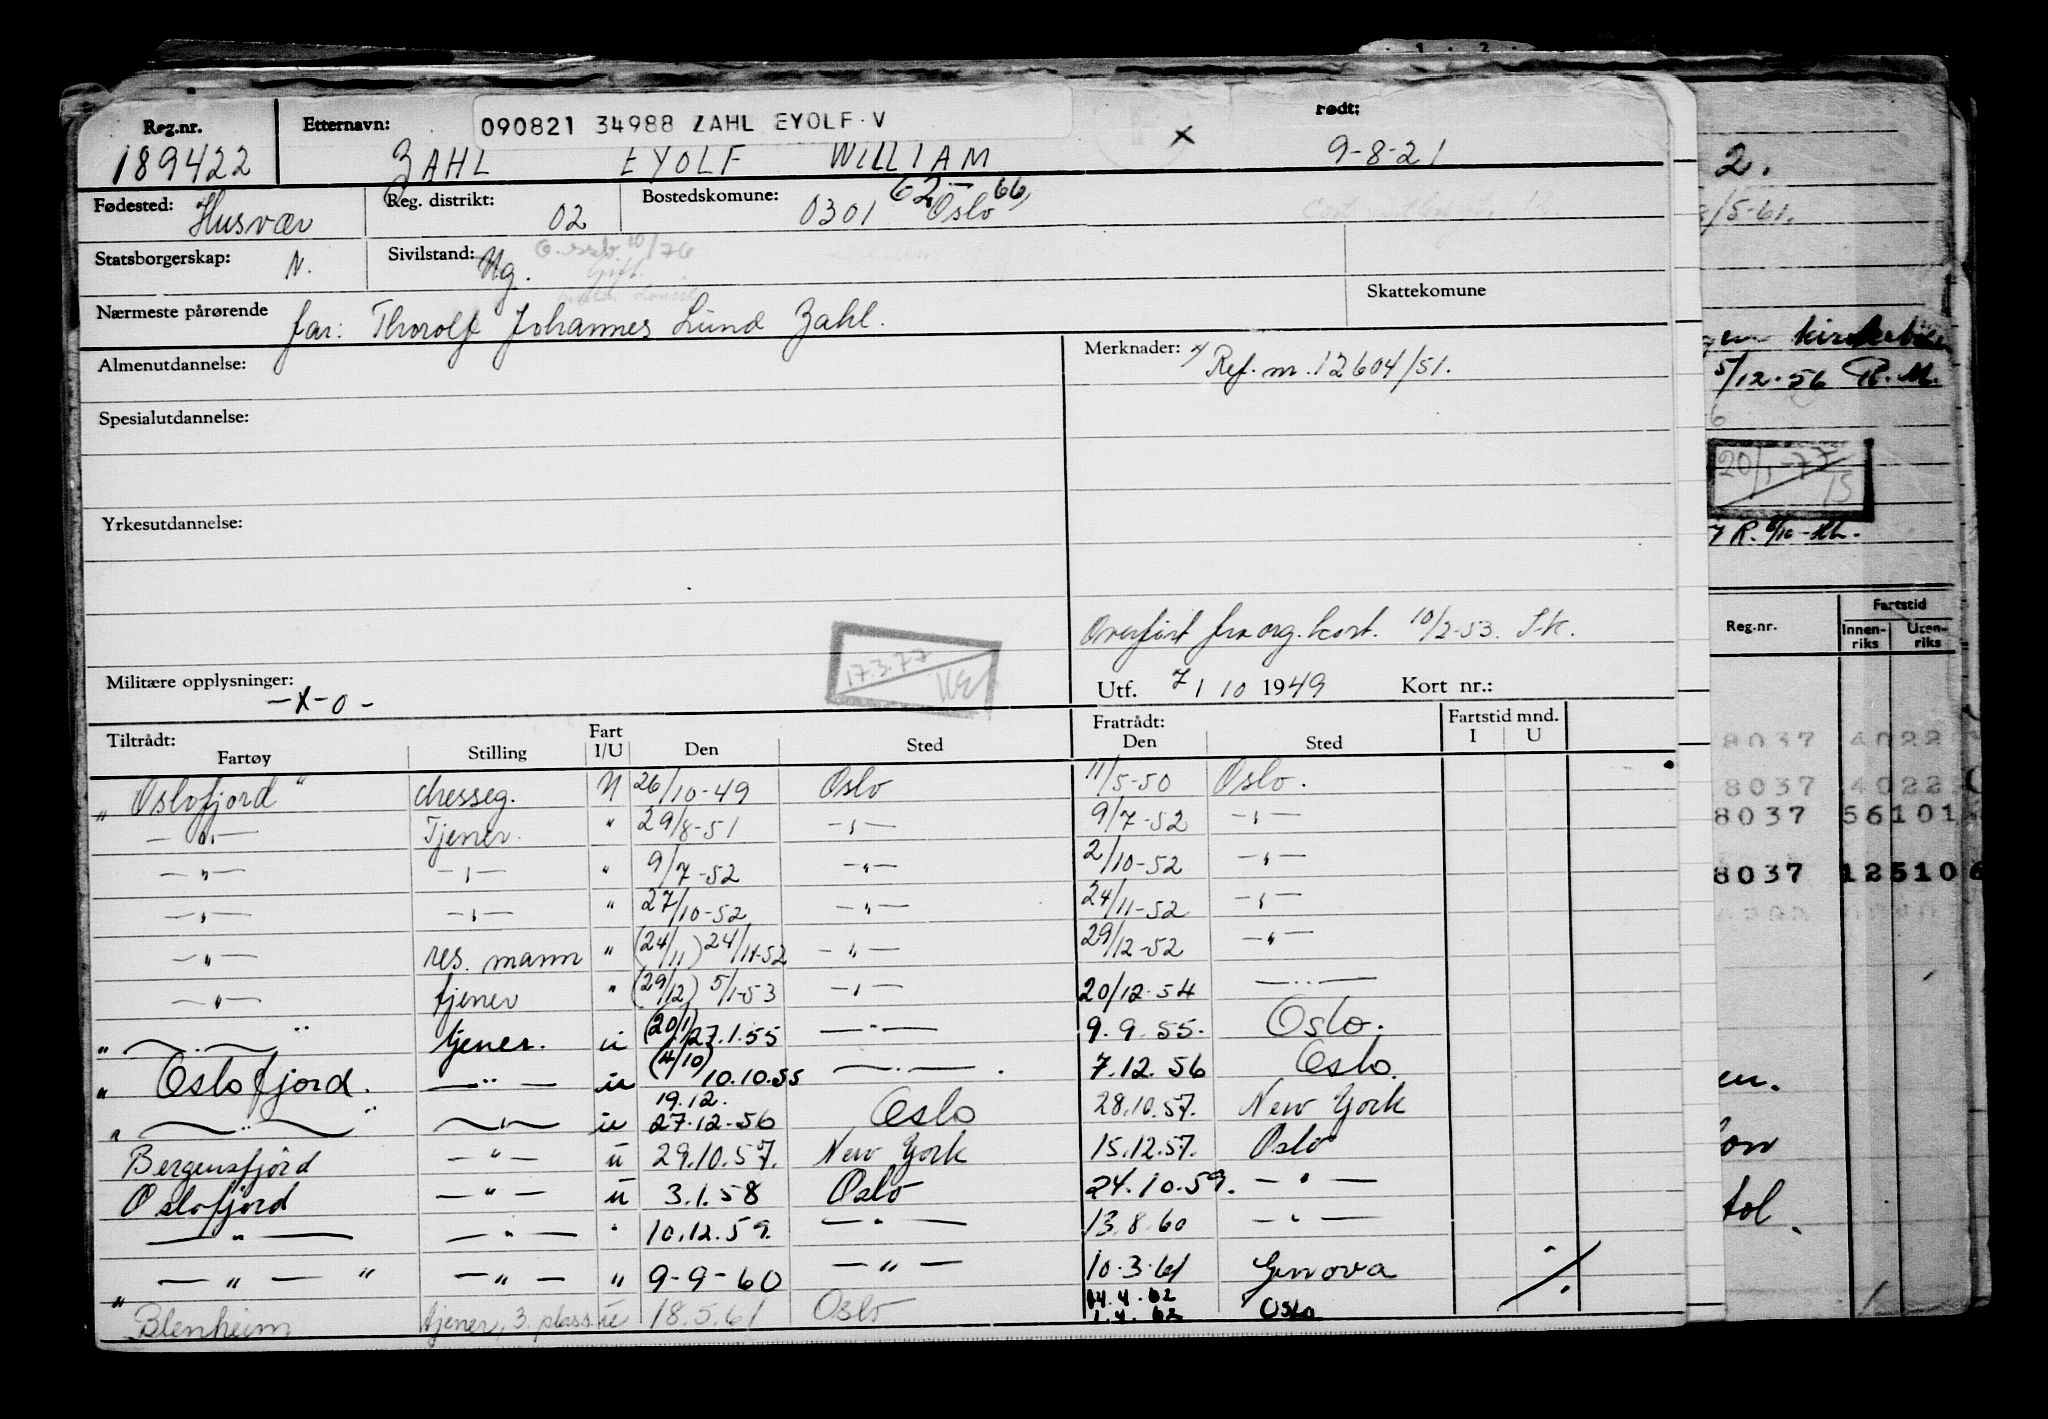 Reg.nr. Etternavn: 090821 34988 ZAHL EYOLF V Født:
189422 ZAHL EYOLF WILLIAM x 9-8-21
Fødested: Husvær Reg. distrikt: 02 Bostedskomune: 0301 62- Oslo 66,
Statsborgerskap: N. Sivilstand: Ug. 10/76
Gift.
Nærmeste pårørende far: Thorolf Johannes Lund Zahl. Skattekomune
Almenutdannelse: Merknader: x/ Ref. nr. 12604/51.
Spesialutdannelse:
Yrkesutdannelse:
Overført fra org. kort. 10/2-53. S.k.
17.3.77
Militære opplysninger: -x-o- Utf. 7 / 10 1949 Kort nr.:
Tiltrådt: Fart Fratrådt: Fartstid mnd.
Fartøy Stilling I/U Den Sted Den Sted I U
„ Oslofjord " Messeg. U 26/10-49 Oslo 11/5-50 Oslo.
—"— Tjener. " 29/8-51 —"— 9/7-52 —"—
—"— —"— " 9/7-52 —"— 2/10-52 —"—
—"— —"— " 27/10-52 —"— 24/11-52 —"—
—"— res. mann " (24/11) 24/11-52 —"— 29/12-52 —"—
—"— tjener " (29/12) 5/1-53 —"— 20/12-54 —"—
„ —"— " tjener. u (20/1) 27.1.55 —"— 9.9.55. Oslo.
„ Oslofjord. —"— u (4/10) 10.10.55 —"—. 7.12.56 Oslo.
19.12.
„ —"— " —"— u 27.12-56 Oslo 28.10.57. New York
Bergensfjord —"— u 29.10.57. New York 15.12.57. Oslo
Oslofjord —"— u 3.1.58 Oslo 24.10.59. —"—
—"— —"— " 10.12.59. —"— 13.8.60 —"—
„ —"— " —"— " 9-9-60 —"— 10.3.61 Genova
14.4.62
Blenheim tjener, 3. plass u 18.5.61 Oslo 1.4.62 Oslo
2.
/5-61.
kirkebøk
5/12-56 R.M.
20/1-77
15
7 R. 8/10-
Reg.nr. Fartstid
Innen-riks Uten-riks
8037 4022
8037 4022
8037 56101
8037 12510
en.
on
tol.